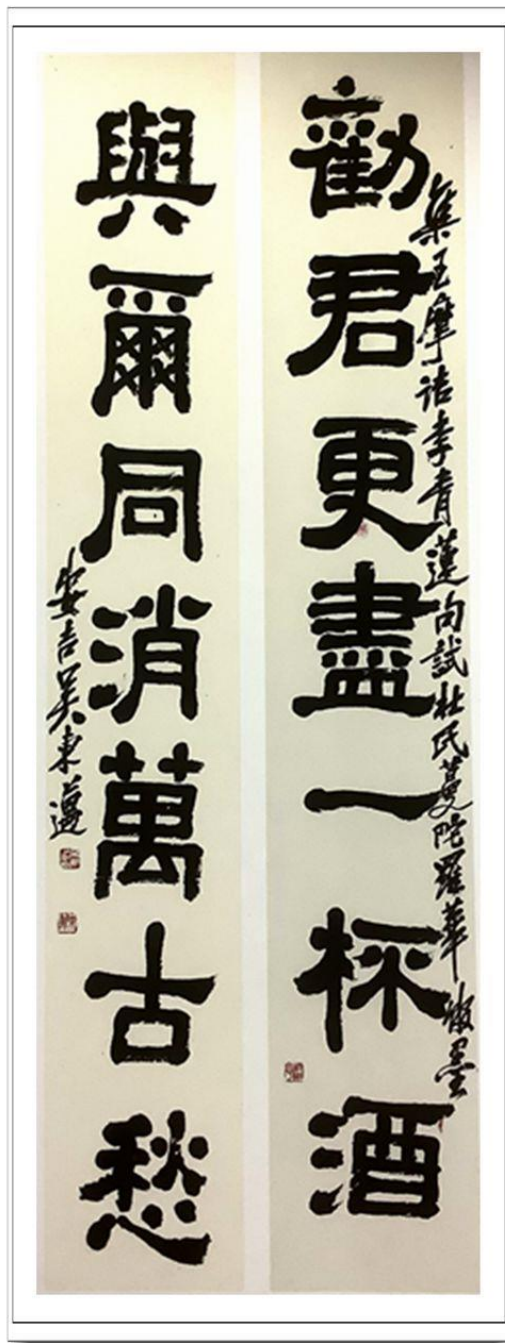 勸君更盡一杯酒
集王摩詰李青蓮句試杜氏蔓陀羅華墨
與爾同消萬古愁
安吉吳東邁